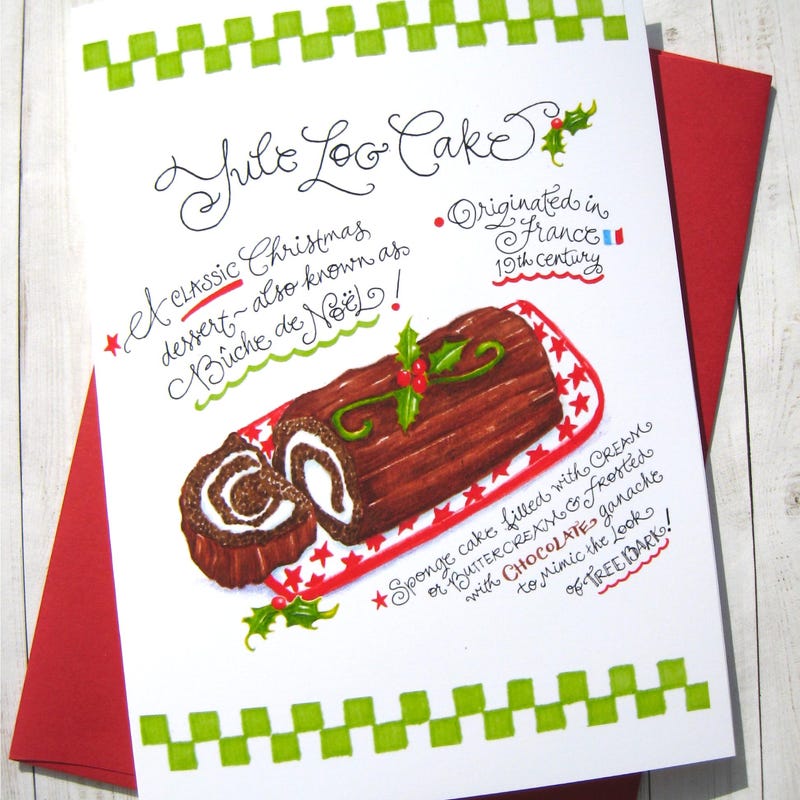 Yule Log Cake
A CLASSIC Christmas
dessert~ also known as
Bûche de Noël!
Originated in
France
19th century
Sponge cake filled with CREAM
or BUTTERCREAM & frosted
with CHOCOLATE ganache
to mimic the look
of TREE BARK!